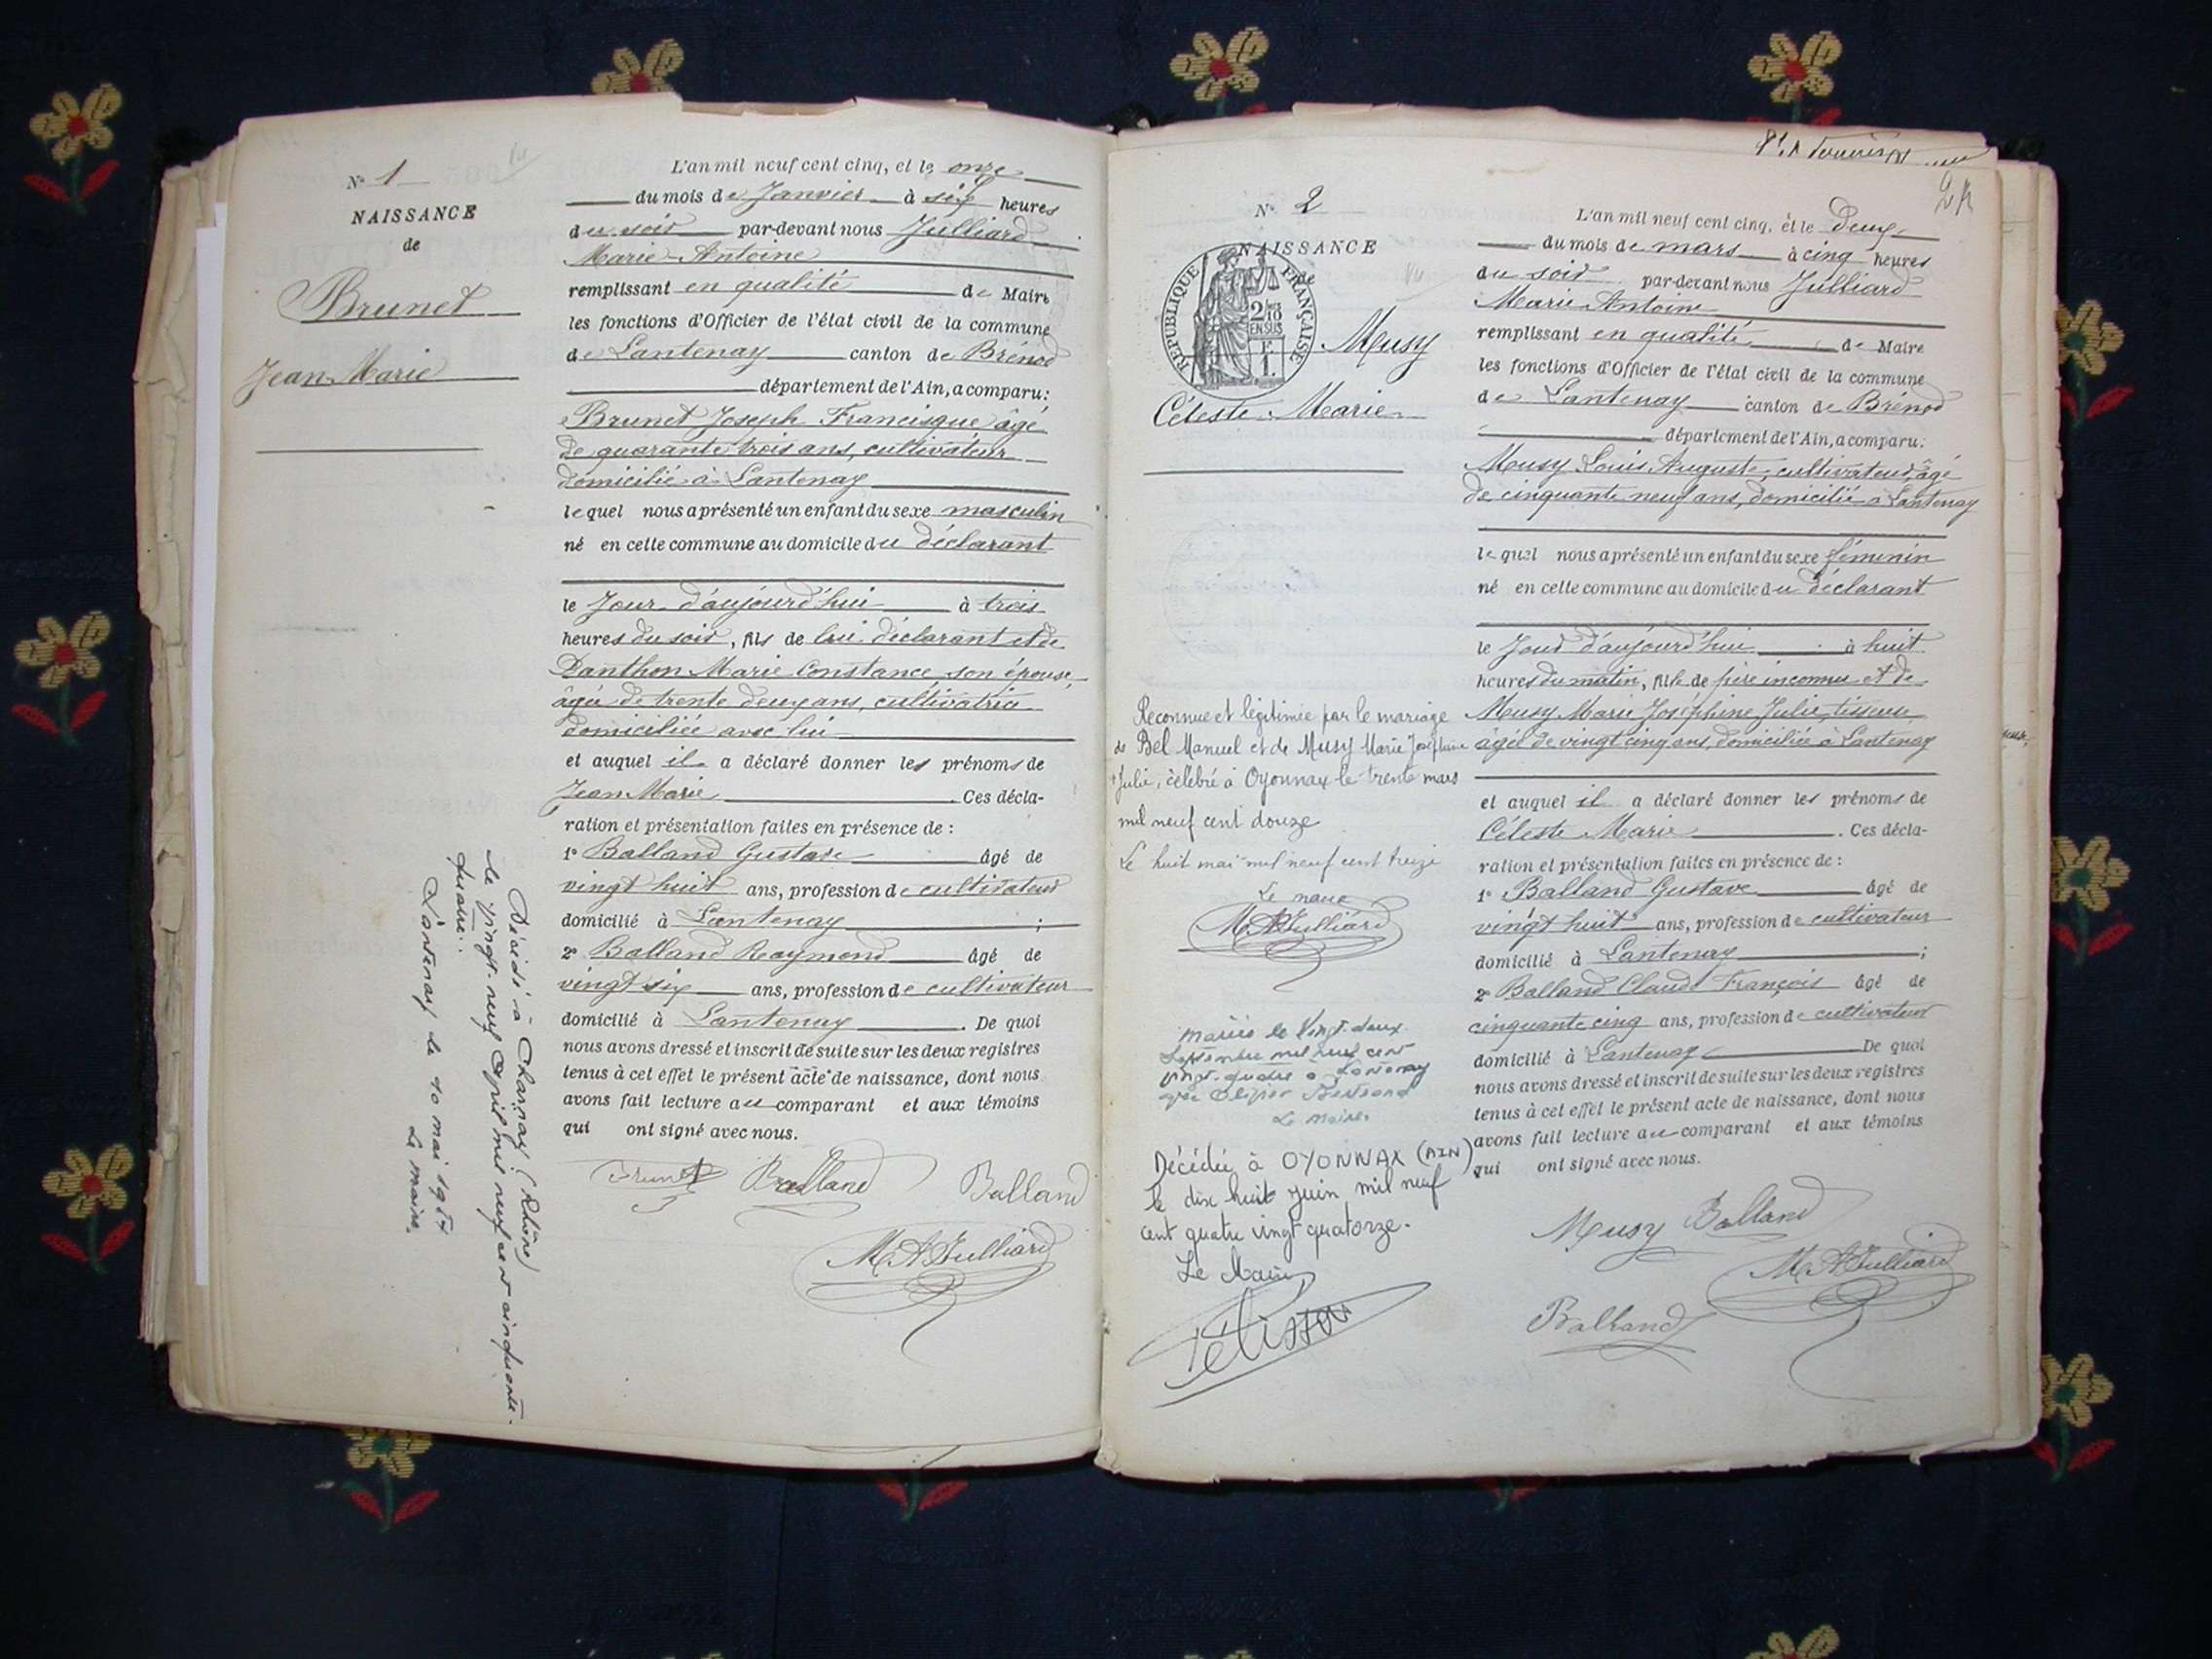 N° 1
NAISSANCE
de
Brunet
Jean Marie
L'an mil neuf cent cinq, et le onze
du mois de Janvier à six heures
du soir par-devant nous Julliard
Marie Antoine
remplissant en qualité de Maire
les fonctions d'Officier de l'état civil de la commune
de Lantenay canton de Brénod
département de l'Ain, a comparu:
Brunet Joseph Francisque âgé
de quarante trois ans, cultivateur
domicilié à Lantenay
lequel nous a présenté un enfant du sexe masculin
né en cette commune au domicile du déclarant
le Jour d'aujourd'hui à trois
heures du soir, fils de lui déclarant et de
Danthon Marie Constance, son épouse,
âgée de trente deux ans, cultivatrice
domiciliée avec lui
et auquel il a déclaré donner les prénoms de
Jean Marie. Ces décla-
ration et présentation faites en présence de :
1° Balland Gustave âgé de
vingt huit ans, profession de cultivateur
domicilié à Lantenay ;
2° Balland Raymond âgé de
vingt six ans, profession de cultivateur
domicilié à Lantenay. De quoi
nous avons dressé et inscrit de suite sur les deux registres
tenus à cet effet le présent acte de naissance, dont nous
avons fait lecture au comparant et aux témoins
qui ont signé avec nous.
Brunet Balland Balland
M. A. Julliard
Décédé à Charnay (Rhône)
le vingt-neuf Avril mil neuf cent cinquante-
quatre.
Lantenay le 10 mai 1954
Le maire.
2
N° 2
NAISSANCE
de
RÉPUBLIQUE FRANÇAISE
2/10
EN SUS
F.
1.
Musy
Céleste Marie
L'an mil neuf cent cinq, et le Deux
du mois de mars à cinq heures
du soir par-devant nous Julliard
Marie Antoine
remplissant en qualité de Maire
les fonctions d'Officier de l'état civil de la commune
de Lantenay canton de Brénod
département de l'Ain, a comparu:
Musy Louis Auguste, cultivateur, âgé
de cinquante neuf ans, domicilié à Lantenay
lequel nous a présenté un enfant du sexe féminin
né en cette commune au domicile du déclarant
le Jour d'aujourd'hui à huit
heures du matin, fille de père inconnu et de
Musy Marie Joséphine Julie, tisseuse
âgée de vingt cinq ans, domiciliée à Lantenay
et auquel il a déclaré donner les prénoms de
Céleste Marie. Ces décla-
ration et présentation faites en présence de :
1° Balland Gustave âgé de
vingt huit ans, profession de cultivateur
domicilié à Lantenay ;
2° Balland Claude François âgé de
cinquante cinq ans, profession de cultivateur
domicilié à Lantenay De quoi
nous avons dressé et inscrit de suite sur les deux registres
tenus à cet effet le présent acte de naissance, dont nous
avons fait lecture au comparant et aux témoins
qui ont signé avec nous.
Musy Balland
M. A. Julliard
Balland
Reconnue et légitimée par le mariage
de Bel Manuel et de Musy Marie Joséphine
Julie, célébré à Oyonnax le trente mars
mil neuf cent douze
Le huit mai mil neuf cent treize
Le maire
M. A. Julliard
Mariée le Vingt-deux
Septembre mil neuf cent
vingt-quatre à Lantenay
avec Bertrand
Le maire.
Décédée à OYONNAX (AIN)
le dix huit Juin mil neuf
cent quatre vingt quatorze.
Le Maire